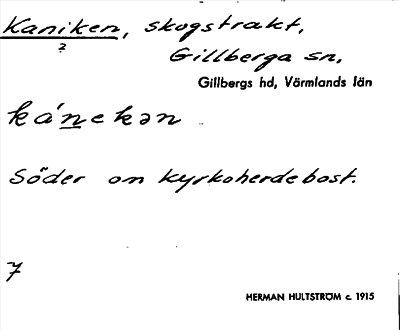 Kaniken, skogstrakt,
?
Gillberga sn,
Gillbergs hd, Värmlands län
ká̱nekən
Söder om kyrkoherdebost.
7
HERMAN HULTSTRÖM c. 1915